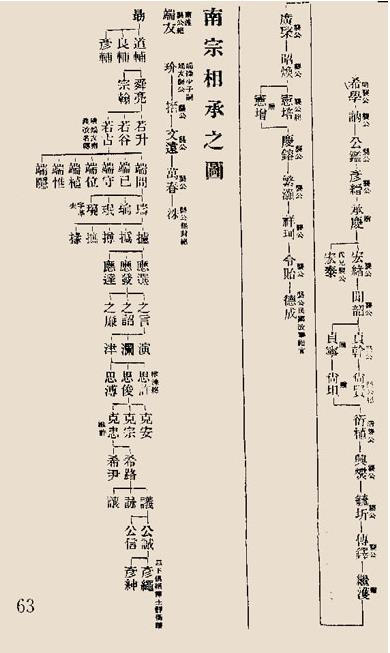 希學 襲公
訥 襲公
公鑑 襲公
彥縉 襲公
承慶 贈
宏緒 襲公
宏泰 代兄襲公
聞韶 襲公
貞幹 襲公
貞寧
尚賢 襲公絕
尚坦
衍植 襲公
興燮 襲公
毓圻 襲公
傳鐸 襲公
繼濩 贈
廣棨 襲公
昭煥 襲公
憲培 襲公絕
憲增
慶鎔 襲公
繁灝 襲公
祥珂 襲公
令貽 襲公
德成 襲公民國改奉祀官
南宗相承之圖
端友 南渡襲公絕
玠 端操少子嗣端友襲公
搢 襲公
文遠 襲公
萬春 襲公
洙
勗
道輔
良輔
彥輔
舜亮
宗翰
若升
若谷
若古
端問
端己
端守
端位
端植
端性
端隱
應達
應發
之言
之詔
之廉
演
瀾
津
思許
思俊
思溥
克安
克宗
克忠
希路
希尹
議
詠
讓
公誠
公信
彥繩
彥紳
63